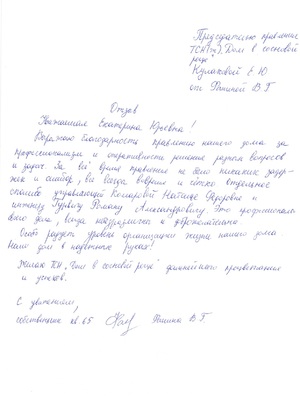 Председателю правления
ТСН(ж) "Дом в сосновой
роще"
Кулаковой Е Ю
от Фаниной В. Г.
Отзыв
Уважаемая Екатерина Юрьевна!
Выражаю благодарность правлению нашего дома за
профессионализм и оперативность решения разных вопросов
и задач. За всё время правления не было никаких задер-
жек и ошибок, всё всегда вовремя и чётко
спасибо управляющей Наталье Фёдоровне и
инженеру Роману Александровичу. Это профессионалы
своего дела, всегда доброжелательные
радует уровень организации жизни нашего дома
дом в надежных руках!
Желаю ТСН "Дом в сосновой роще" дальнейшего процветания
и успехов.
С уважением,
собственник кв. 65 Фанина В. Г.